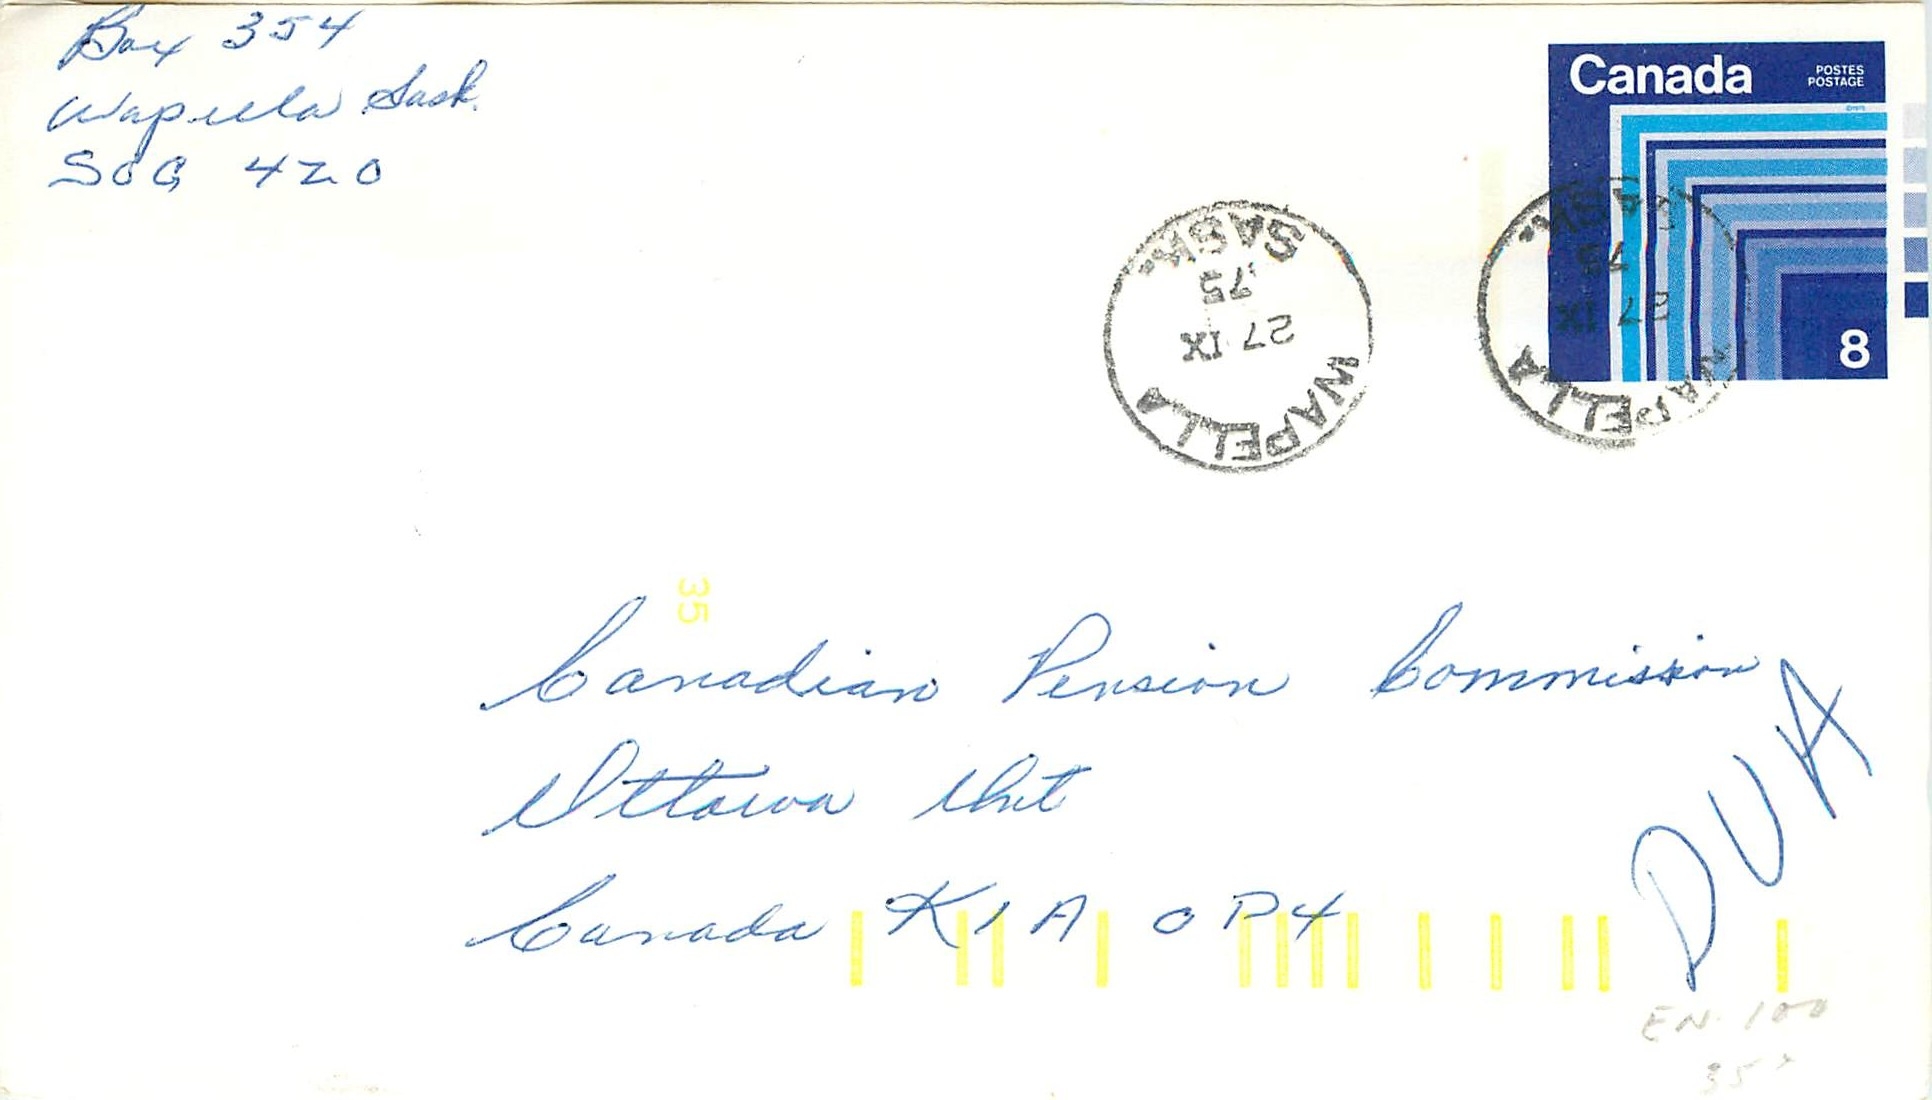 Box 354
Wapella Sask.
S0G 4Z0
Canada
POSTES
POSTAGE
8
WAPELLA
27 IX
75
SASK.
WAPELLA
27 IX
75
SASK.
35
Canadian Pension Commission
Ottawa Ont
Canada K1A 0P4
DVA
EN-100